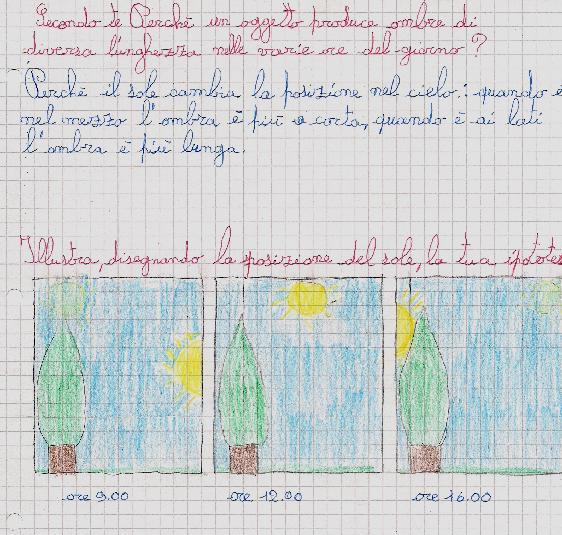 Secondo te Perché un oggetto produce ombre di
diversa lunghezza nelle varie ore del giorno?
Perché il sole cambia la posizione nel cielo: quando è
nel mezzo l'ombra è più corta, quando è ai lati
l'ombra è più lunga.
Illustra, disegnando la posizione del sole, la tua ipotes
ore 9.00
ore 12.00
ore 16.00